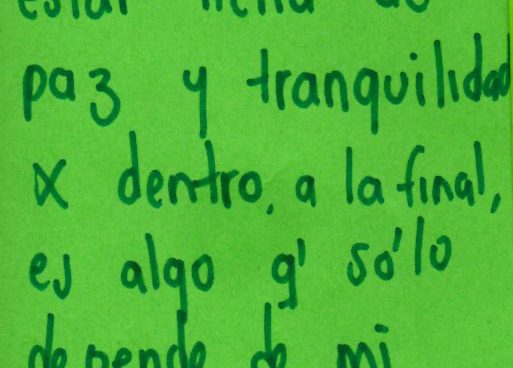 estar llena de
paz y tranquilidad
x dentro, a la final,
es algo q' sólo
depende de mi